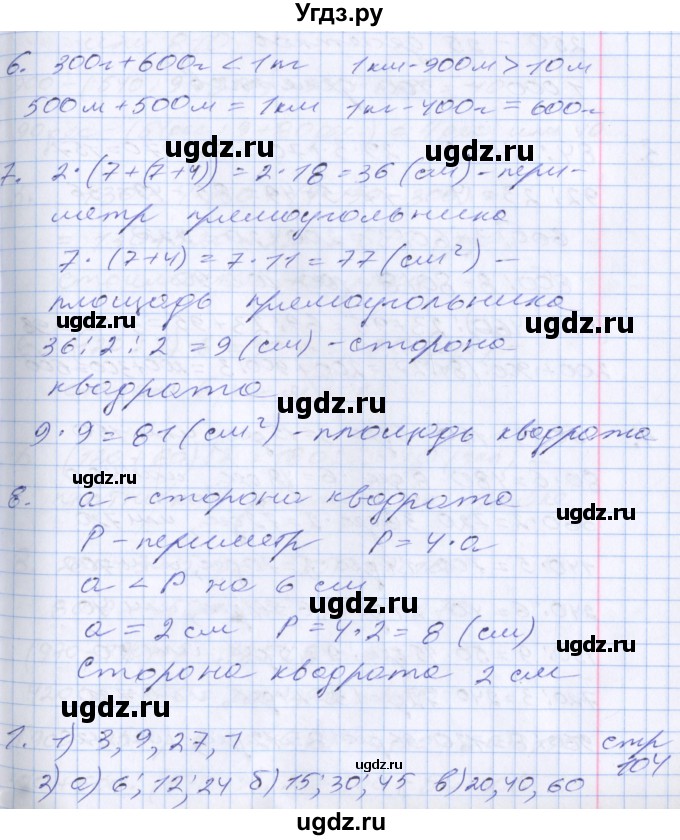 Угдз.ру
6. 300г+600г < 1кг 1км-900м > 10м
500м+500м = 1км 1кг-400г = 600г
ugdz.ru
ugdz.ru
7. 2·(7+(7+4)) = 2·18 = 36 (см) - пери-
метр прямоугольника
7·(7+4) = 7·11 = 77 (см²) –
площадь прямоугольника
ugdz.ru
ugdz.ru
36:2:2 = 9 (см) - сторона
квадрата
ugdz.ru
9·9 = 81 (см²) - площадь квадрата
ugdz.ru
8. a - сторона квадрата
ugdz.ru
P - периметр P = 4·a
a < P на 6 см
ugdz.ru
a = 2 см P = 4·2 = 8 (см)
ugdz.ru
Сторона квадрата 2 см
ugdz.ru
1. 1) 3, 9, 27, 1 стр
104
2) а) 6; 12; 24 б) 15; 30; 45 в) 20, 40, 60
ugdz.ru
ugdz.ru